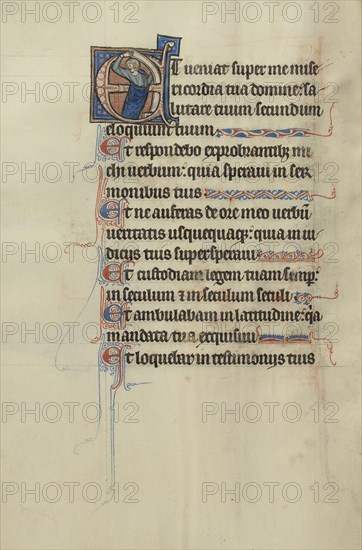 Et veniat super me mise
ricordia tua domine: sa
lutare tuum secundum
eloquium tuum.
Et respondebo exprobrantibꝫ mi
chi verbum: quia speravi in ser
monibus tuis
Et ne auferas de ore meo verbū
veritatis usquequaqꝫ: quia in iu
diciis tuis supersperavi
Et custodiam legem tuam semp:
in seculum ⁊ in seculum seculi
Et ambulabam in latitudine: qa
mandata tua exquisivi
Et loquebar in testimoniis tuis
PHOTO 12